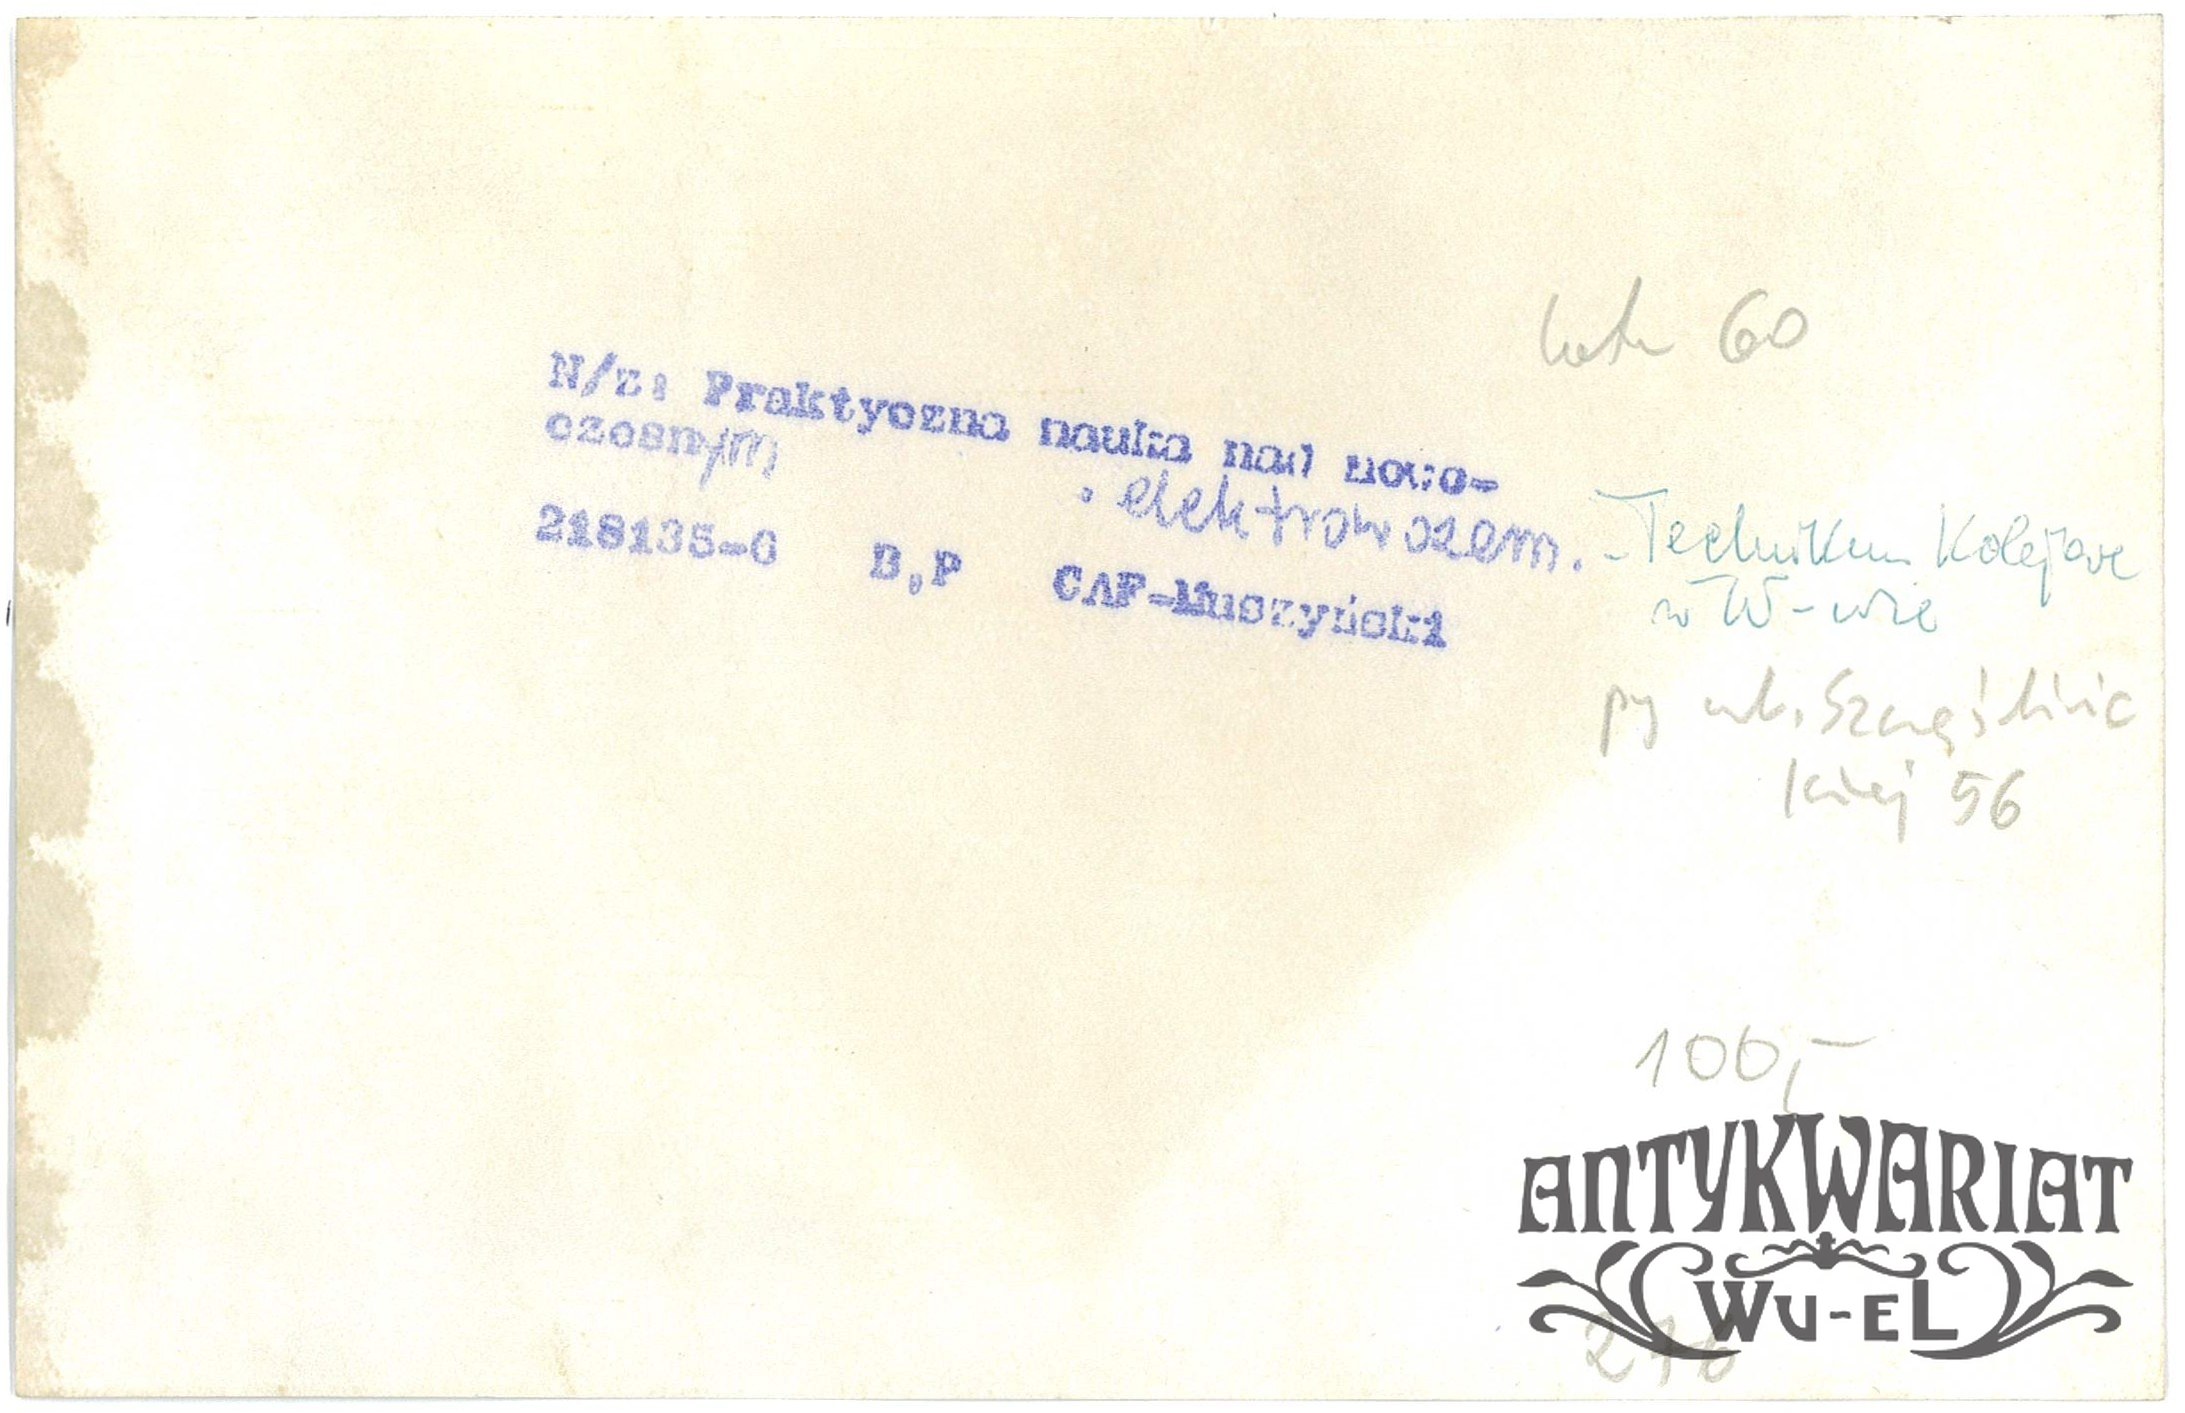 lata 60
N/z: Praktyczna nauka nad nowo-
czesnym elektrowozem.
218135-6 B,P CAF-Muszyński
- Technikum Kolejowe
w W-wie
py ul. Szczęśliwic
kiej 56
100,-
ANTYKWARIAT
WU-EL